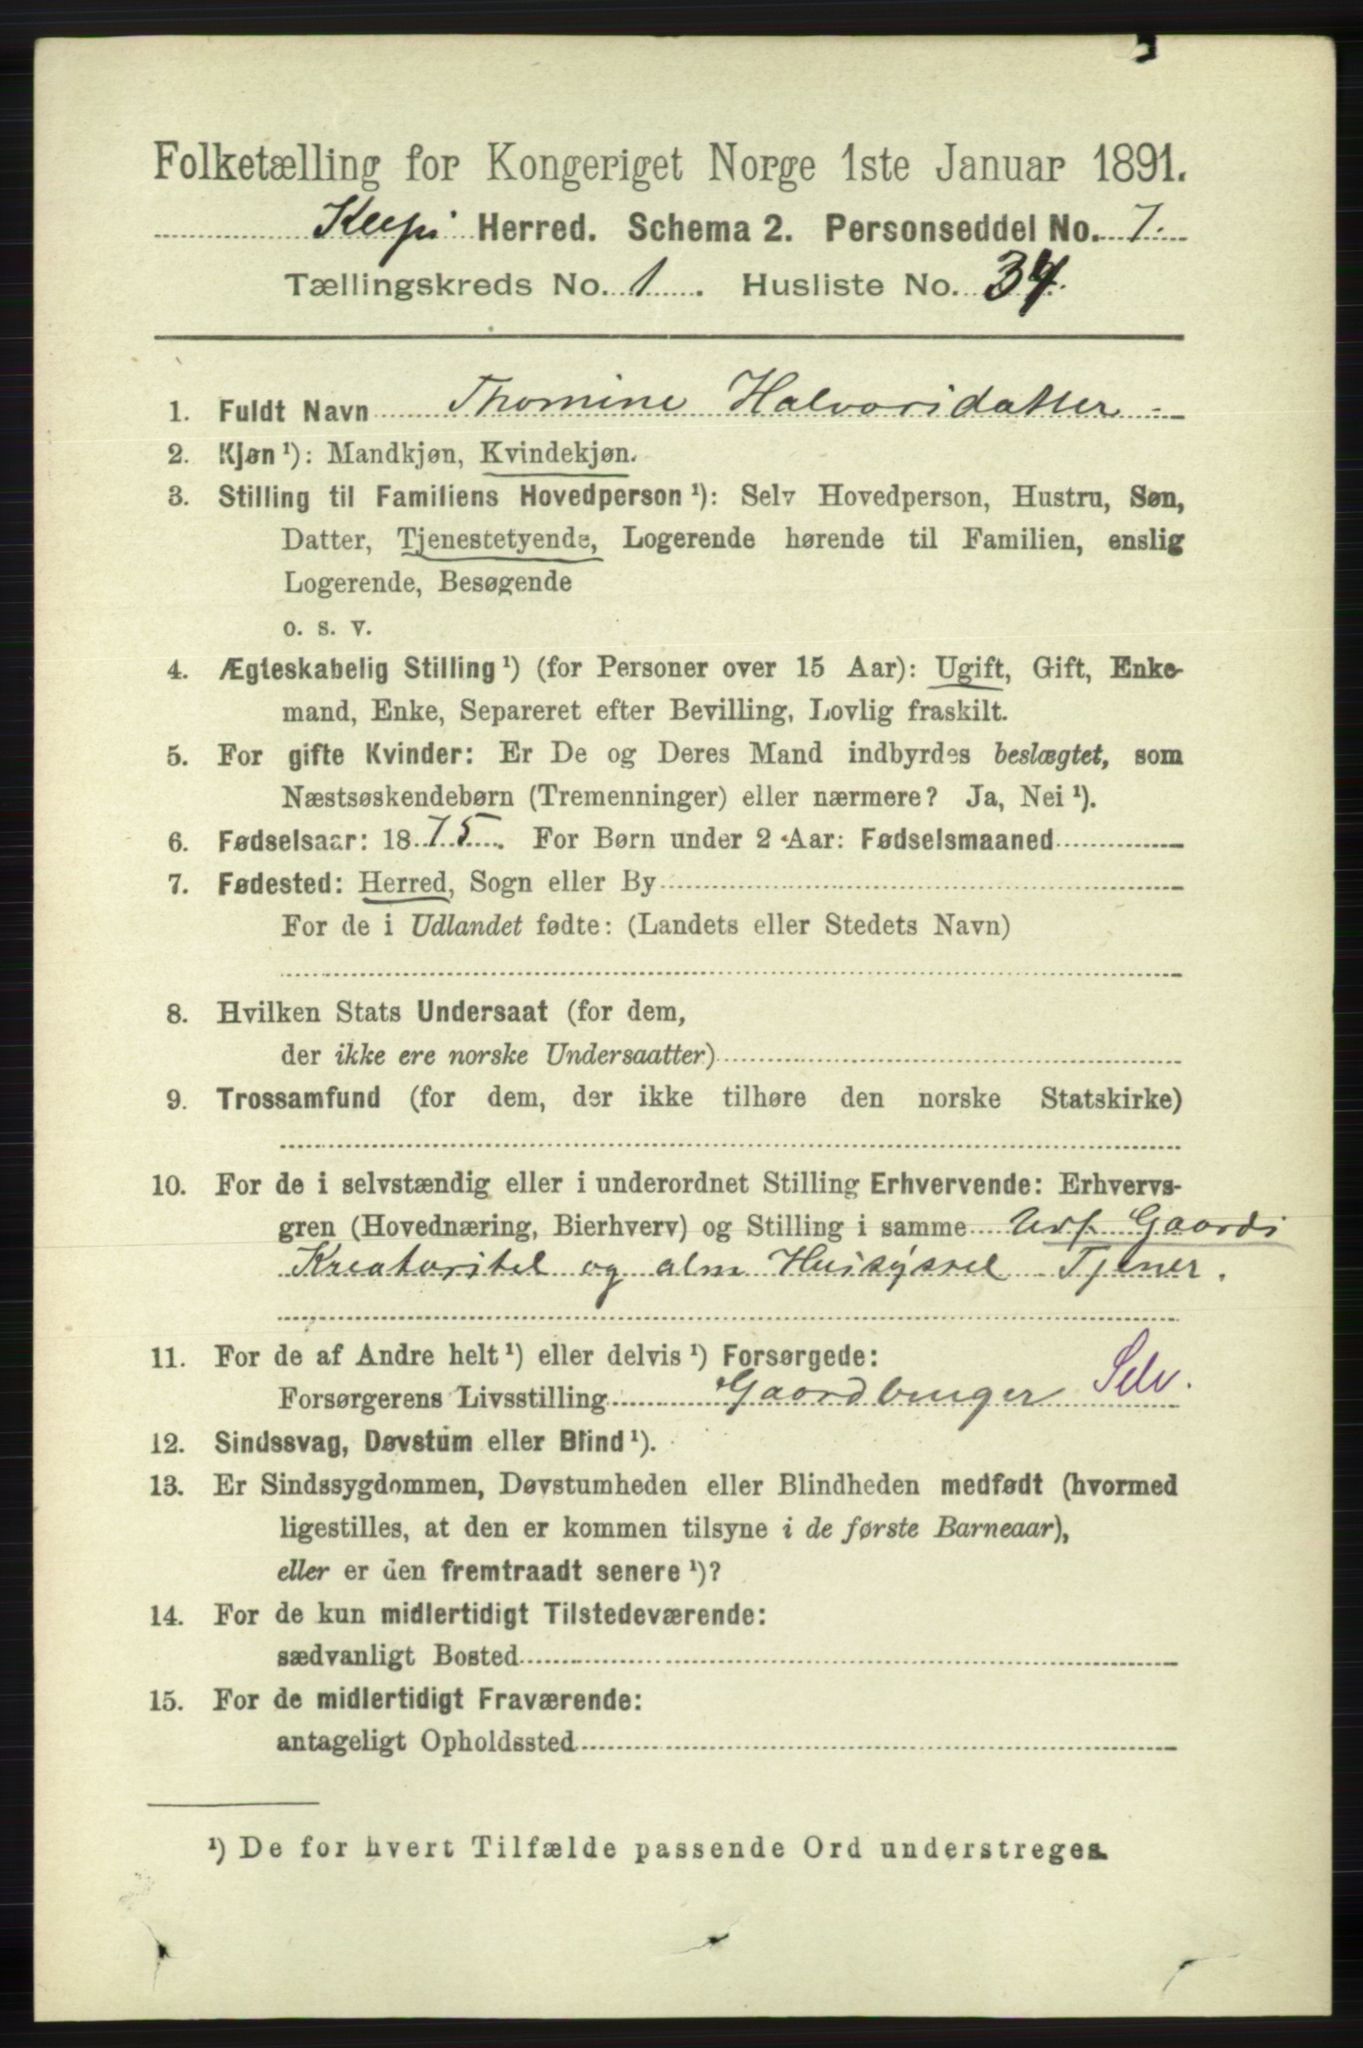 Folketælling for Kongeriget Norge 1ste Januar 1891.
Klepi Herred. Schema 2. Personseddel No. 7.
Tællingskreds No. 1. Husliste No. 34.
1. Fuldt Navn Thomine Halvorsdatter
2. Kjøn ¹): Mandkjøn, Kvindekjøn.
3. Stilling til Familiens Hovedperson ¹): Selv Hovedperson, Hustru, Søn,
Datter, Tjenestetyende, Logerende hørende til Familien, enslig
Logerende, Besøgende
o. s. v.
4. Ægteskabelig Stilling ¹) (for Personer over 15 Aar): Ugift, Gift, Enke-
mand, Enke, Separeret efter Bevilling, Lovlig fraskilt.
5. For gifte Kvinder: Er De og Deres Mand indbyrdes beslægtet, som
Næstsøskendebørn (Tremenninger) eller nærmere? Ja, Nei ¹).
6. Fødselsaar: 1875. For Børn under 2 Aar: Fødselsmaaned
7. Fødested: Herred, Sogn eller By
For de i Udlandet fødte: (Landets eller Stedets Navn)
8. Hvilken Stats Undersaat (for dem,
der ikke ere norske Undersaatter)
9. Trossamfund (for dem, der ikke tilhøre den norske Statskirke)
10. For de i selvstændig eller i underordnet Stilling Erhvervende: Erhvervs-
gren (Hovednæring, Bierhverv) og Stilling i samme Udf Gaards
Kreaturstel og alm Huskyssel Tjener.
11. For de af Andre helt ¹) eller delvis ¹) Forsørgede:
Forsørgerens Livsstilling Gaardbruger Selv.
12. Sindssvag, Døvstum eller Blind ¹).
13. Er Sindssygdommen, Døvstumheden eller Blindheden medfødt (hvormed
ligestilles, at den er kommen tilsyne i de første Barneaar),
eller er den fremtraadt senere ¹)?
14. For de kun midlertidigt Tilstedeværende:
sædvanligt Bosted
15. For de midlertidigt Fraværende:
antageligt Opholdssted
¹) De for hvert Tilfælde passende Ord understreges.